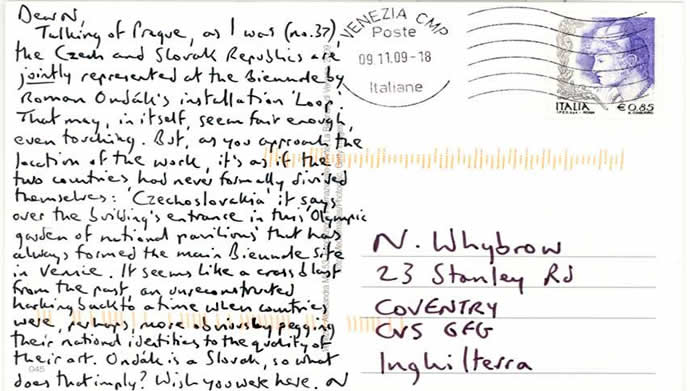 Dear N,
Talking of Prague, as I was (no.37),
the Czech and Slovak Republics are
jointly represented at the Biennale by
Roman Ondák's installation 'Loop'.
That may, in itself, seem fair enough,
even touching. But, as you approach the
location of the work, it's as if the
two countries had never formally divided
themselves: 'Czechoslovakia' it says
over the building's entrance in this 'Olympic
garden of national pavilions' that has
always formed the main Biennale site
in Venice. It seems like a cross blast
from the past, an unreconstructed
harking back to a time when countries
were, perhaps, more obviously pegging
their national identities to the quality of
their art. Ondák is a Slovak, so what
does that imply? Wish you were here. N
045
VENEZIA CMP
Poste
09.11.09-18
Italiane
ITALIA
€0,85
N. Whybrow
23 Stanley Rd
COVENTRY
CV5 6FG
Inghilterra